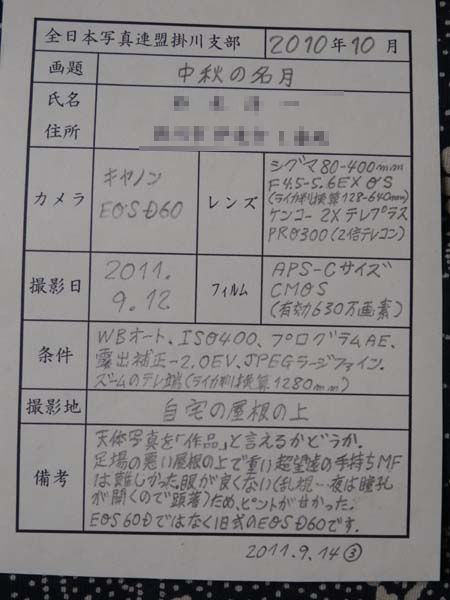 全日本写真連盟掛川支部 2010年10月
画題 中秋の名月
氏名
住所
カメラ キヤノン
EOS D60
レンズ シグマ80-400mm
F4.5-5.6EX OS
(ライカ判換算128-640mm)
ケンコー2Xテレプラス
PRO300(2倍テレコン)
撮影日 2011.
9.12
フィルム APS-Cサイズ
CMOS
(有効630万画素)
条件 WBオート、ISO400、プログラムAE、
露出補正-2.0EV、JPEGラージファイン.
ズームのテレ端(ライカ判換算1280mm)
撮影地 自宅の屋根の上
備考 天体写真を「作品」と言えるかどうか。
足場の悪い屋根の上で重い超望遠の手持ちMF
は難しかった。眼が良くない(乱視…夜は瞳孔
が開くので顕著)ため、ピントが甘かった。
EOS 60Dではなく旧式のEOS D60です。
2011.9.14③